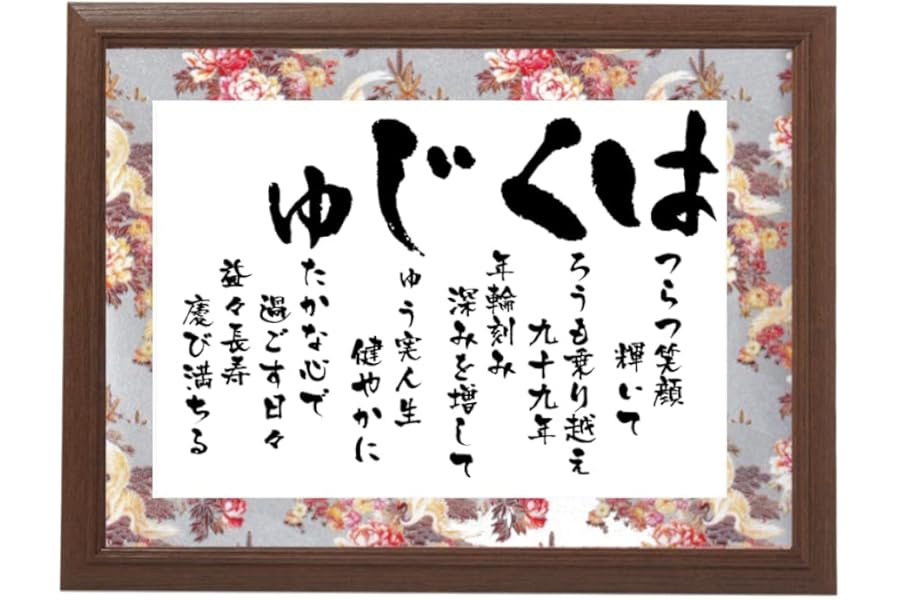 はくじゆ
つらつ笑顔
輝いて
ろうも乗り越え
九十九年
年輪刻み
深みを増して
ゅう実人生
健やかに
たかな心で
過ごす日々
益々長寿
慶び満ちる